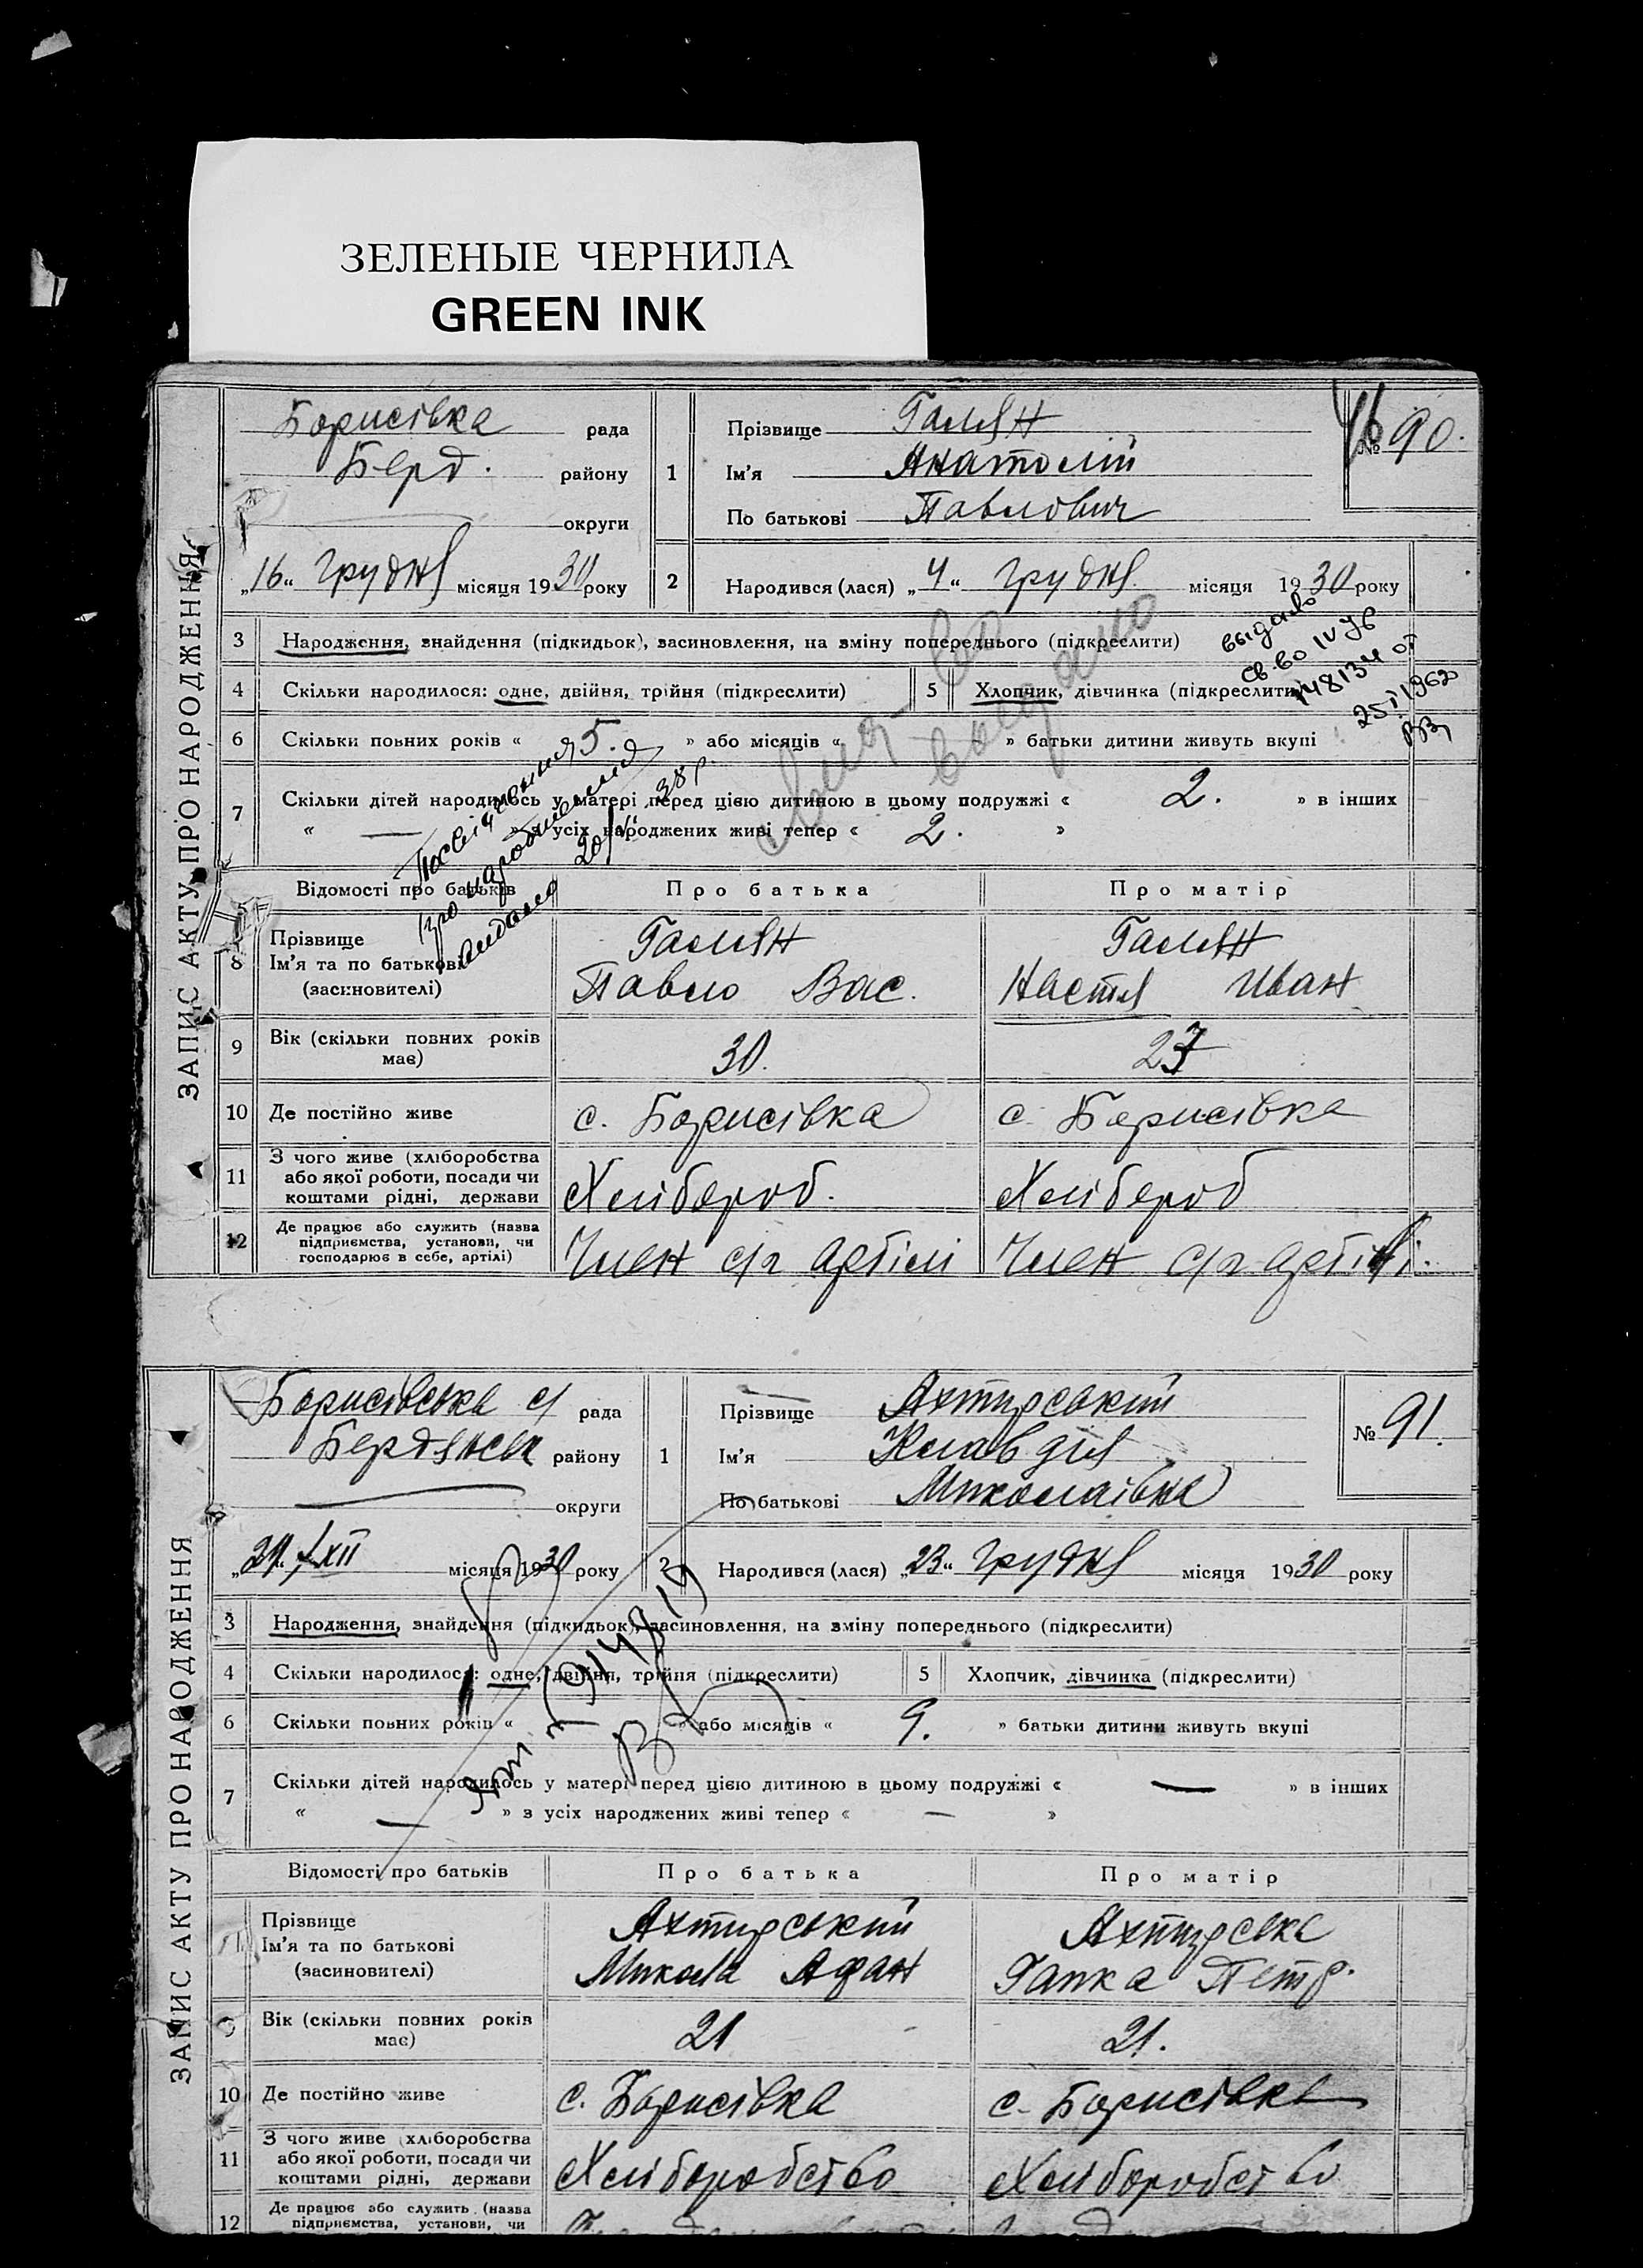 ЗЕЛЕНЫЕ ЧЕРНИЛА
GREEN INK
ЗАПИС АКТУ ПРО НАРОДЖЕННЯ
Борисівка рада
Берд. району
округи
„16“ грудня місяця 1930 року
1
Прізвище Галян
Ім’я Анатолій
По батькові Павлович
№ 90.
2 Народився (лася) „4“ грудня місяця 1930 року
3 Народження, знайдення (підкидьок), засиновлення, на зміну попереднього (підкреслити)
4 Скільки народилося: одне, двійня, трійня (підкреслити) 5 Хлопчик, дівчинка (підкреслити)
6 Скільки повних років « 5. » або місяців « » батьки дитини живуть вкупі
7 Скільки дітей народилось у матері перед цією дитиною в цьому подружжі « 2. » в інших
« — » з усіх народжених живі тепер « 2. »
выдано
св-во IV УБ
148134 от
25 I 1962
Посвідчення
про народження
видано 20/ 38 р.
выдано
Відомості про батьків Про батька Про матір
8 Прізвище
Ім’я та по батькові
(засиновителі)
Галян Галян
Павло Вас. Настя Иван
9 Вік (скільки повних років має) 30. 27
10 Де постійно живе с. Борисівка с. Борисівка
11 З чого живе (хліборобства
або якої роботи, посади чи
коштами рідні, держави
Хлібороб. Хлібороб
12 Де працює або служить (назва
підприємства, установи, чи
господарює в себе, артілі)
Член с/г артілі Член с/г артілі.
ЗАПИС АКТУ ПРО НАРОДЖЕННЯ
Борисівська с/ рада
Бердянськ району
округи
XII місяця 1930 року
1
Прізвище Ахтирський
Ім’я Клавдія
По батькові Миколаівна
№ 91.
2 Народився (лася) „23“ грудня місяця 1930 року
3 Народження, знайдення (підкидьок), засиновлення, на зміну попереднього (підкреслити)
4 Скільки народилося: одне, двійня, трійня (підкреслити) 5 Хлопчик, дівчинка (підкреслити)
6 Скільки повних років « » або місяців « 9. » батьки дитини живуть вкупі
7 Скільки дітей народилось у матері перед цією дитиною в цьому подружжі « — » в інших
« — » з усіх народжених живі тепер « — »
Відомості про батьків Про батька Про матір
Прізвище
Ім’я та по батькові
(засиновителі)
Ахтирський Ахтирська
Микола Афан Гапка Петр.
9 Вік (скільки повних років має) 21 21.
10 Де постійно живе с. Борисівка с. Борисівка
11 З чого живе (хліборобства
або якої роботи, посади чи
коштами рідні, держави
Хліборобство Хліборобство
12 Де працює або служить (назва
підприємства, установи, чи